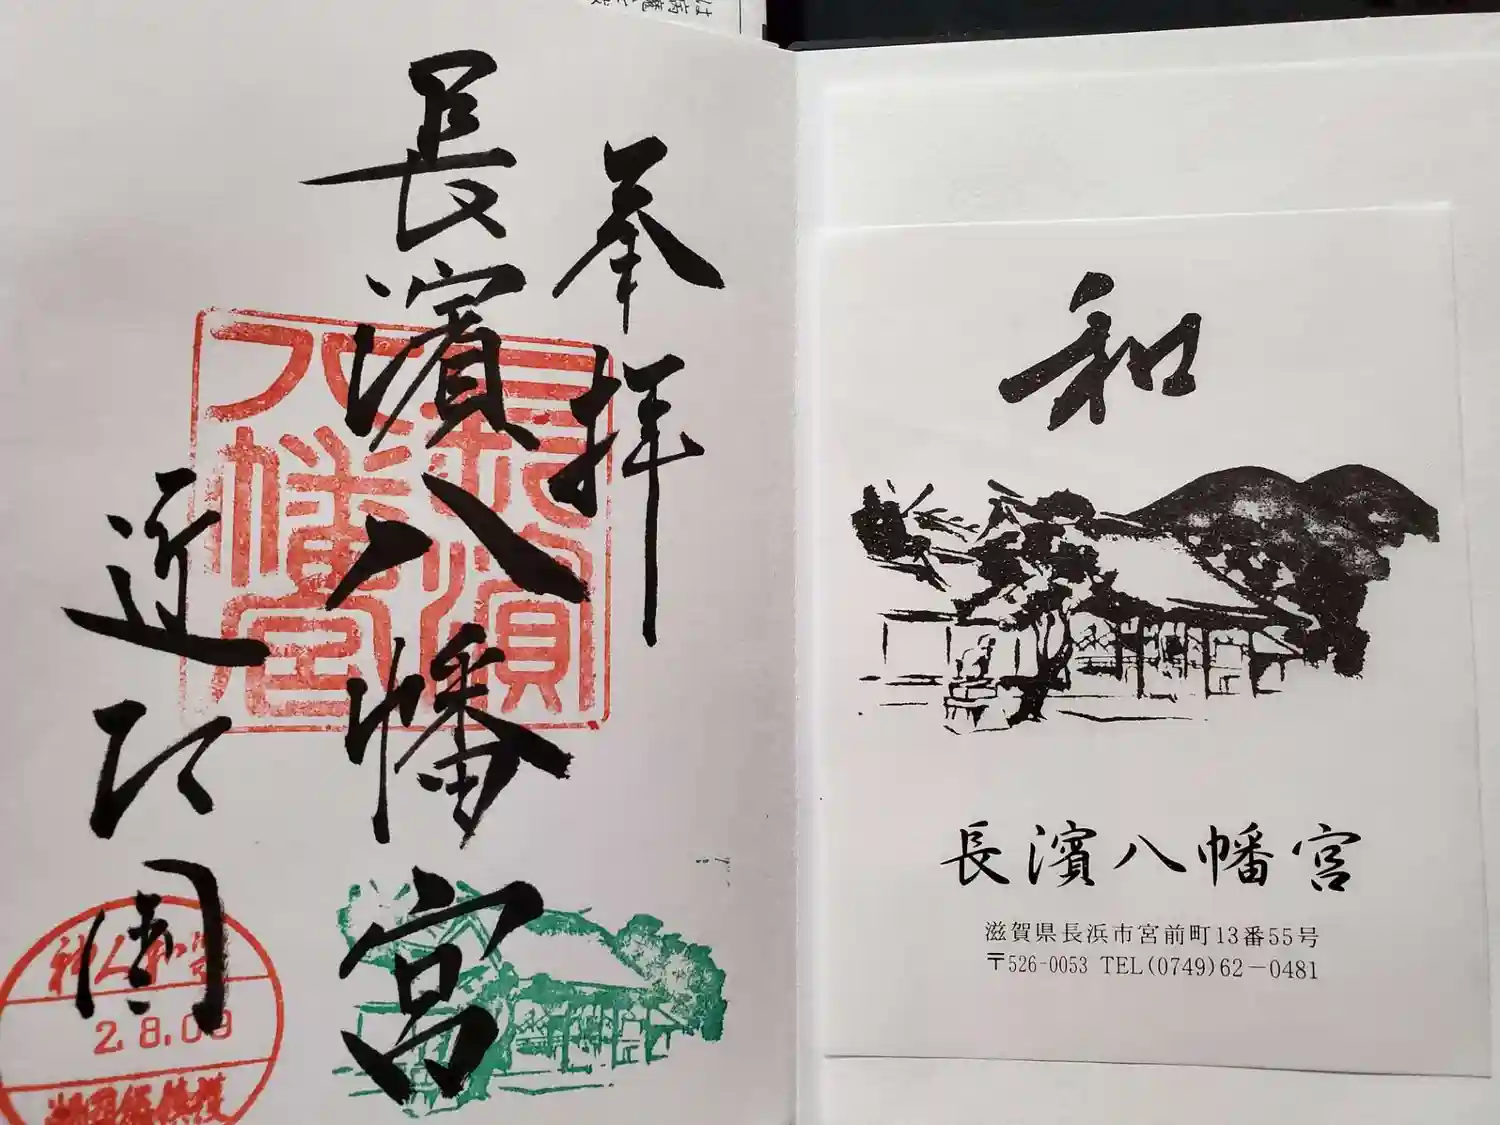 奉拝
長濱八幡宮
近江國
長濱
八幡宮
神人和楽
2.8.09
和
長濱八幡宮
滋賀県長浜市宮前町13番55号
〒526-0053 TEL(0749)62-0481